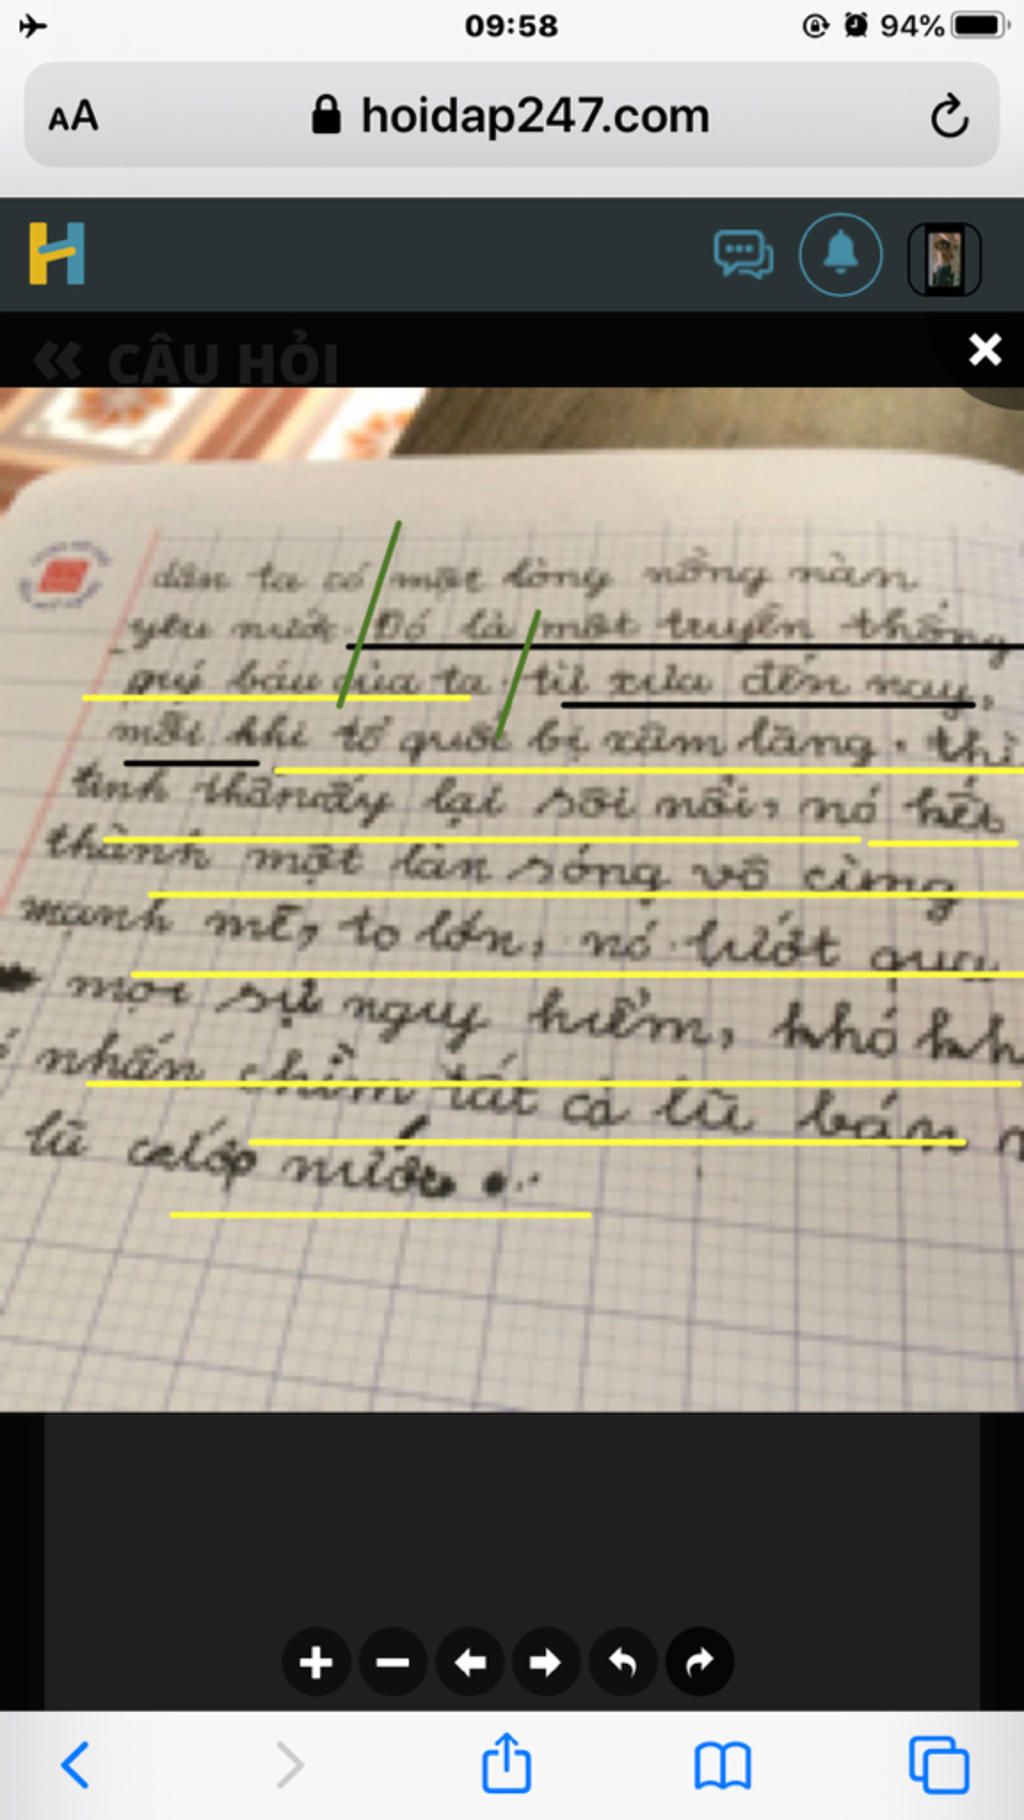 09:58
94%
AA hoidap247.com
H
« CÂU HỎI
dân ta có một lòng nồng nàn
yêu nước. Đó là một truyền thống
quý báu của ta. từ xưa đến nay,
mỗi khi tổ quốc bị xâm lăng. thì
tinh thần ấy lại sôi nổi, nó kết
thành một làn sóng vô cùng
mạnh mẽ, to lớn, nó lướt qua
mọi sự nguy hiểm, khó kh
nhấn chìm tất cả lũ bán n
lũ cướp nước.